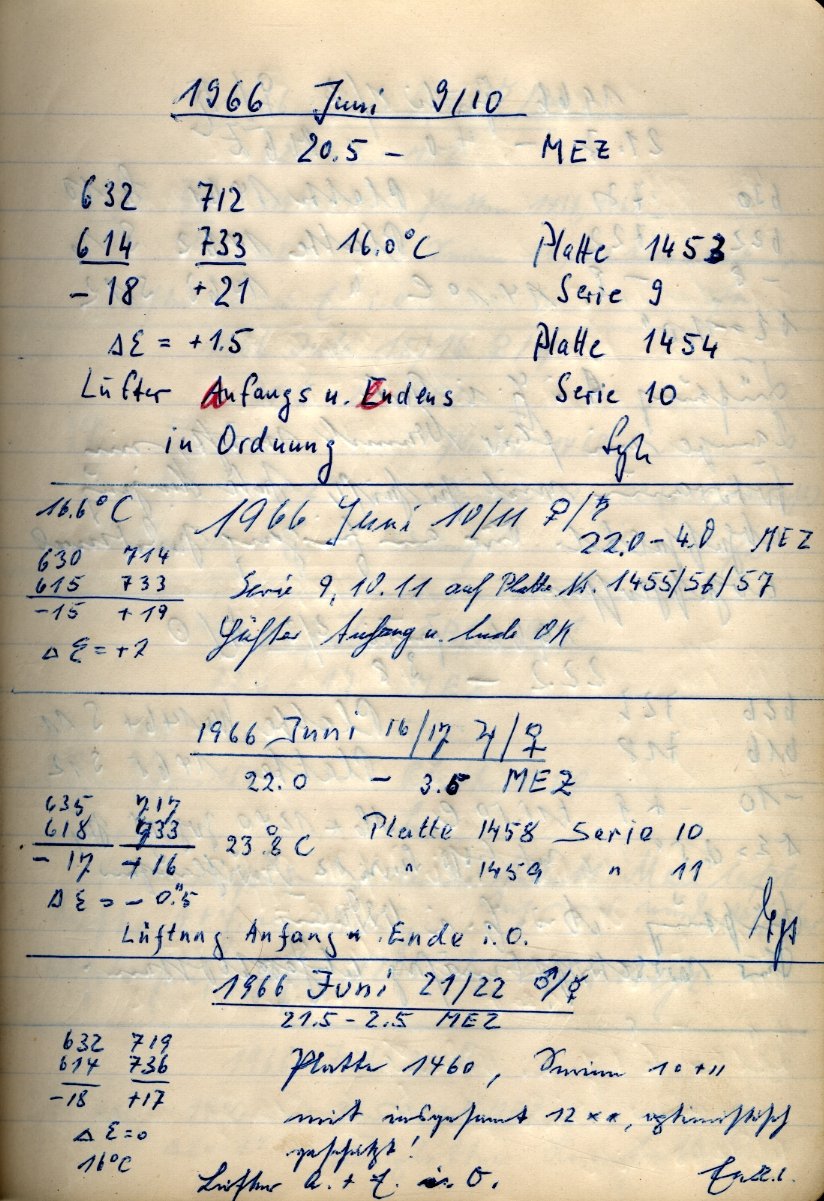 1966 Juni 9/10
20.5 – MEZ
632 712
614 733 16.0°C Platte 1453
-18 +21 Serie 9
Δε = +1.5 Platte 1454
Lüfter Anfangs u. Endens Serie 10
in Ordnung
16.6°C 1966 Juni 10/11 ♀/♄
22.0 – 4.0 MEZ
630 714
615 733 Serie 9, 10. 11 auf Platte Nr. 1455/56/57
-15 +19
Lüfter Anfang u. Ende OK
Δε = +2
1966 Juni 16/17 ♃/♀
22.0 – 3.5 MEZ
635 717
618 733 23.8°C Platte 1458 Serie 10
-17 +16 " 1459 " 11
Δε = -0".5
Lüftung Anfang u. Ende i.O.
1966 Juni 21/22 ♂/☿
21.5 – 2.5 MEZ
632 719
614 736 Platte 1460, Serien 10+11
-18 +17
mit insgesamt 12 **, optimistisch
Δε = 0
geschätzt!
16°C
Lüfter A. + E. i. O.